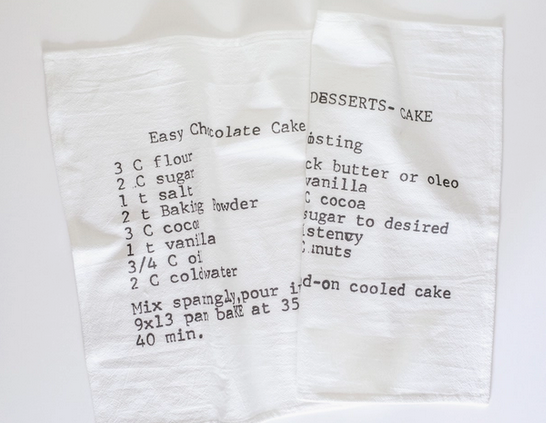 Easy Chocolate Cake
3 C flour
2 C sugar
1 t salt
2 t Baking Powder
3 C cocoa
1 t vanilla
3/4 C oi
2 C coldwater
Mix spamgly,pour i
9x13 pan bake at 35
40 min.
DESSERTS- CAKE
osting
ck butter or oleo
vanilla
C cocoa
sugar to desired
istency
C nuts
d-on cooled cake